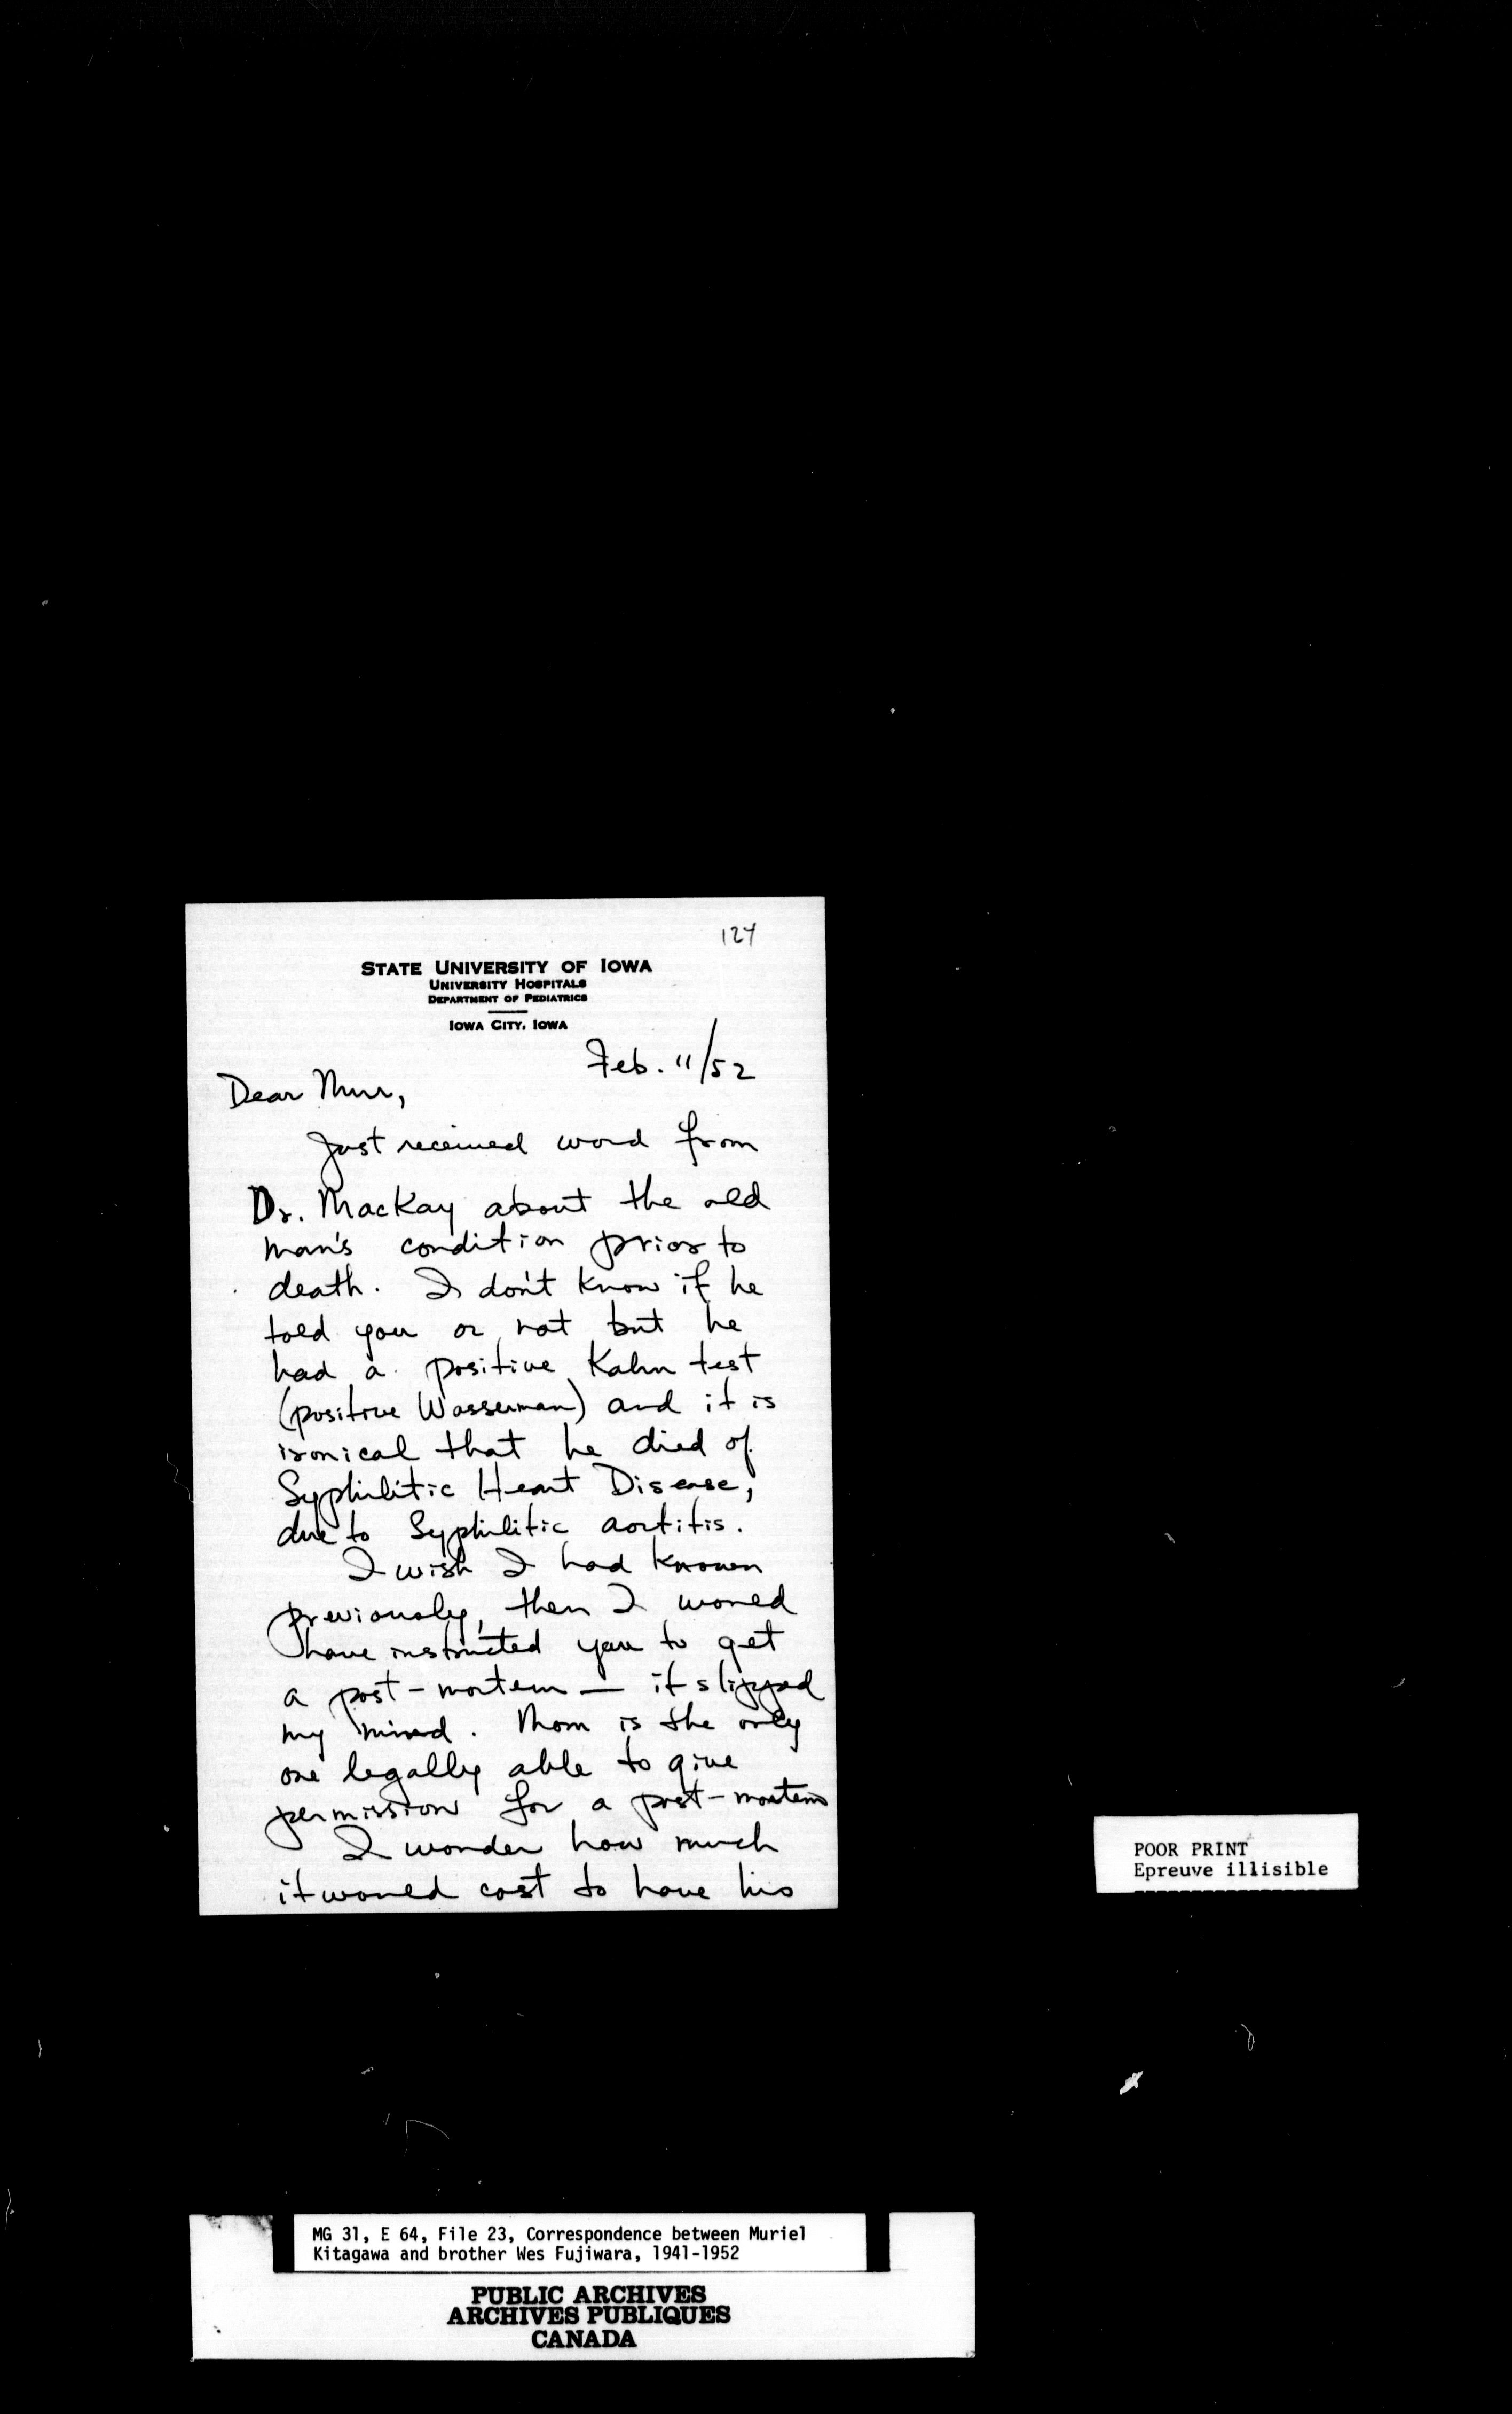 124
STATE UNIVERSITY OF IOWA
UNIVERSITY HOSPITALS
DEPARTMENT OF PEDIATRICS
IOWA CITY, IOWA
Feb. 11/52
Dear Mur,
Just received word from
Dr. MacKay about the old
man's condition prior to
death. I don't know if he
told you or not but he
had a positive Kahn test
(positive Wasserman) and it is
ironical that he died of
Syphilitic Heart Disease,
due to Syphilitic aortitis.
I wish I had known
previously, then I would
have instructed you to get
a post-mortem — it slipped
my mind. Mom is the only
one legally able to give
permission for a post-mortem
I wonder how much
it would cost to have his
POOR PRINT
Epreuve illisible
MG 31, E 64, File 23, Correspondence between Muriel
Kitagawa and brother Wes Fujiwara, 1941-1952
PUBLIC ARCHIVES
ARCHIVES PUBLIQUES
CANADA